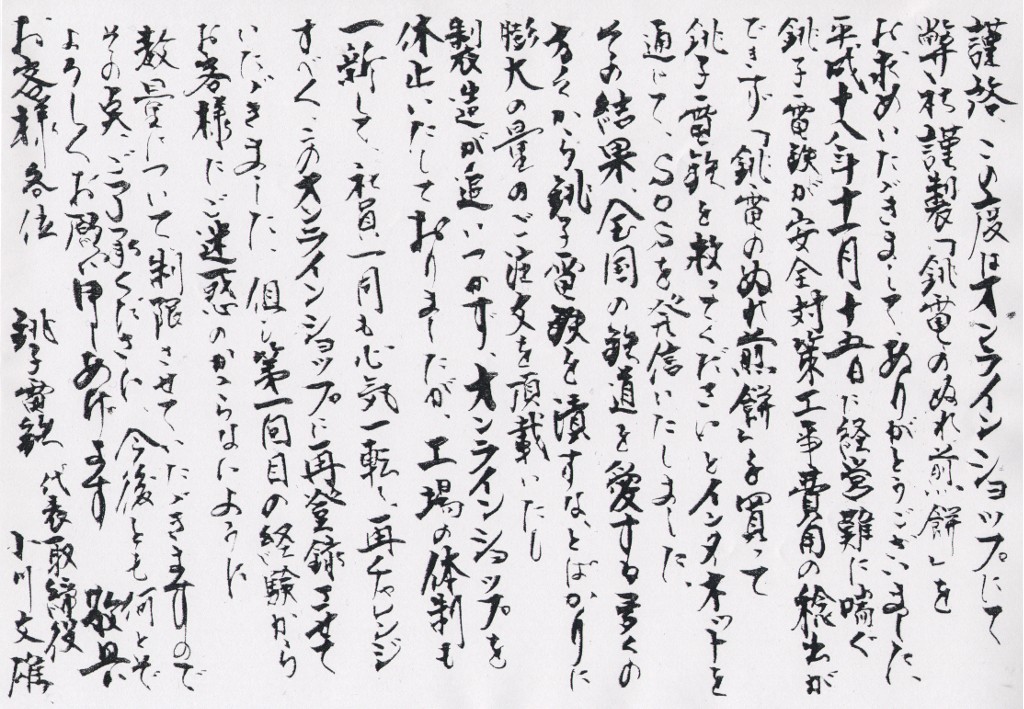 謹啓、この度はオンラインショップにて
弊社謹製「銚電のぬれ煎餅」を
お求めいただきまして、ありがとうございました、
平成十八年十一月十五日に経営難に喘ぐ
銚子電鉄が安全対策工事費用の稔出が
できず「銚電のぬれ煎餅」を買って
銚子電鉄を救ってくださいとインターネットを
通じて、SOSを発信いたしました、
その結果、全国の鉄道を愛する多くの
方々から銚子電鉄を潰すな、とばかりに
膨大の量のご注文を頂戴いたし
製造が追いつかず、オンラインショップを
休止いたしておりましたが、工場の体制も
一新して、社員一同も心気一転し、再チャレンジ
すべく、このオンラインショップに再登録させて
いただきました、但し第一回目の経験から
お客様にご迷惑のかからないように
数量について制限させていただきますので
その点、ご了承ください、今後とも何とぞ
よろしくお願い申しあげます 敬具
お客様各位 銚子電鉄 代表取締役 小川文雄